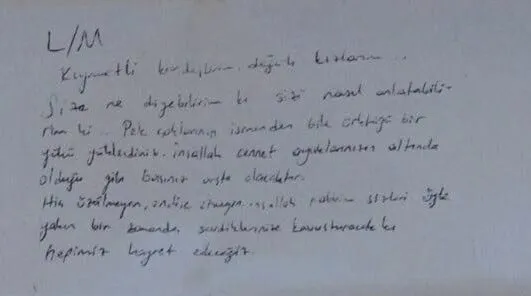 L/M
Kıymetli kardeşlerim, değerli kızlarım...
Size ne diyebilirim ki sizi nasıl anlatabili-
rim ki... Pek çoklarının isminden bile ürktüğü bir
yükü yüklendiniz. İnşallah cennet ayaklarınızın altında
olduğu gibi başınız arşta olacaktır.
Hiç üzülmeyin, endişe etmeyin, inşallah rabbim sizleri öyle
yakın bir zamanda sevdiklerinize kavuşturacak ki
hepimiz hayret edeceğiz.